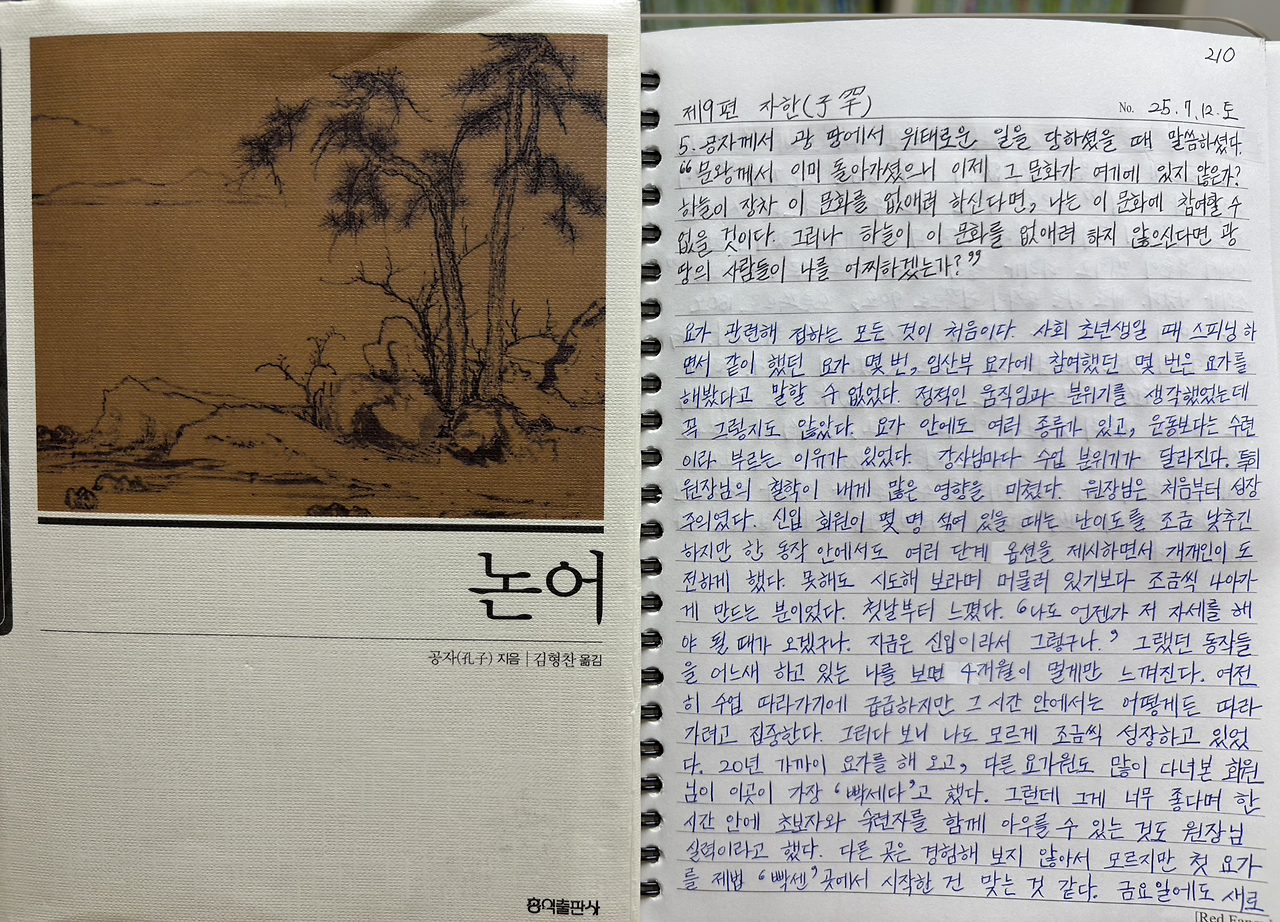 논어
공자(孔子) 지음 | 김형찬 옮김
홍익출판사
210
제9편 자한(子罕)
No. 25.7.12.토
5. 공자께서 광 땅에서 위태로운 일을 당하셨을 때 말씀하셨다.
“문왕께서 이미 돌아가셨으니 이제 그 문화가 여기에 있지 않은가?
하늘이 장차 이 문화를 없애려 하신다면, 나는 이 문화에 참여할 수
없을 것이다. 그러나 하늘이 이 문화를 없애려 하지 않으신다면 광
땅의 사람들이 나를 어찌하겠는가?”
요가 관련해 접하는 모든 것이 처음이다. 사회 초년생일 때 스피닝 하
면서 같이 했던 요가 몇 번, 임산부 요가에 참여했던 몇 번은 요가를
해봤다고 말할 수 없었다. 정적인 움직임과 분위기를 생각했었는데
꼭 그렇지도 않았다. 요가 안에도 여러 종류가 있고, 운동보다는 수련
이라 부르는 이유가 있었다. 강사님마다 수업 분위기가 달라진다. 특히
원장님의 철학이 내게 많은 영향을 미쳤다. 원장님은 처음부터 성장
주의였다. 신입 회원이 몇 명 섞여 있을 때는 난이도를 조금 낮추긴
하지만 한 동작 안에서도 여러 단계 옵션을 제시하면서 개개인이 도
전하게 했다. 못해도 시도해 보라며 머물러 있기보다 조금씩 나아가
게 만드는 분이었다. 첫날부터 느꼈다. ‘나도 언젠가 저 자세를 해
야 될 때가 오겠구나. 지금은 신입이라서 그렇구나.’ 그랬던 동작들
을 어느새 하고 있는 나를 보면 4개월이 멀게만 느껴진다. 여전
히 수업 따라가기에 급급하지만 그 시간 안에서는 어떻게든 따라
가려고 집중한다. 그러다 보니 나도 모르게 조금씩 성장하고 있었
다. 20년 가까이 요가를 해 오고, 다른 요가원도 많이 다녀본 회원
님이 이곳이 가장 ‘빡세다’고 했다. 그런데 그게 너무 좋다며 한
시간 안에 초보자와 숙련자를 함께 아우를 수 있는 것도 원장님
실력이라고 했다. 다른 곳은 경험해 보지 않아서 모르지만 첫 요가
를 제법 ‘빡센’ 곳에서 시작한 건 맞는 것 같다. 금요일에도 새로